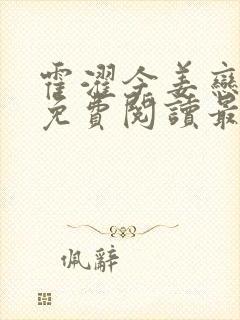 霍濯今姜戀
免費閱讀最
佩辭